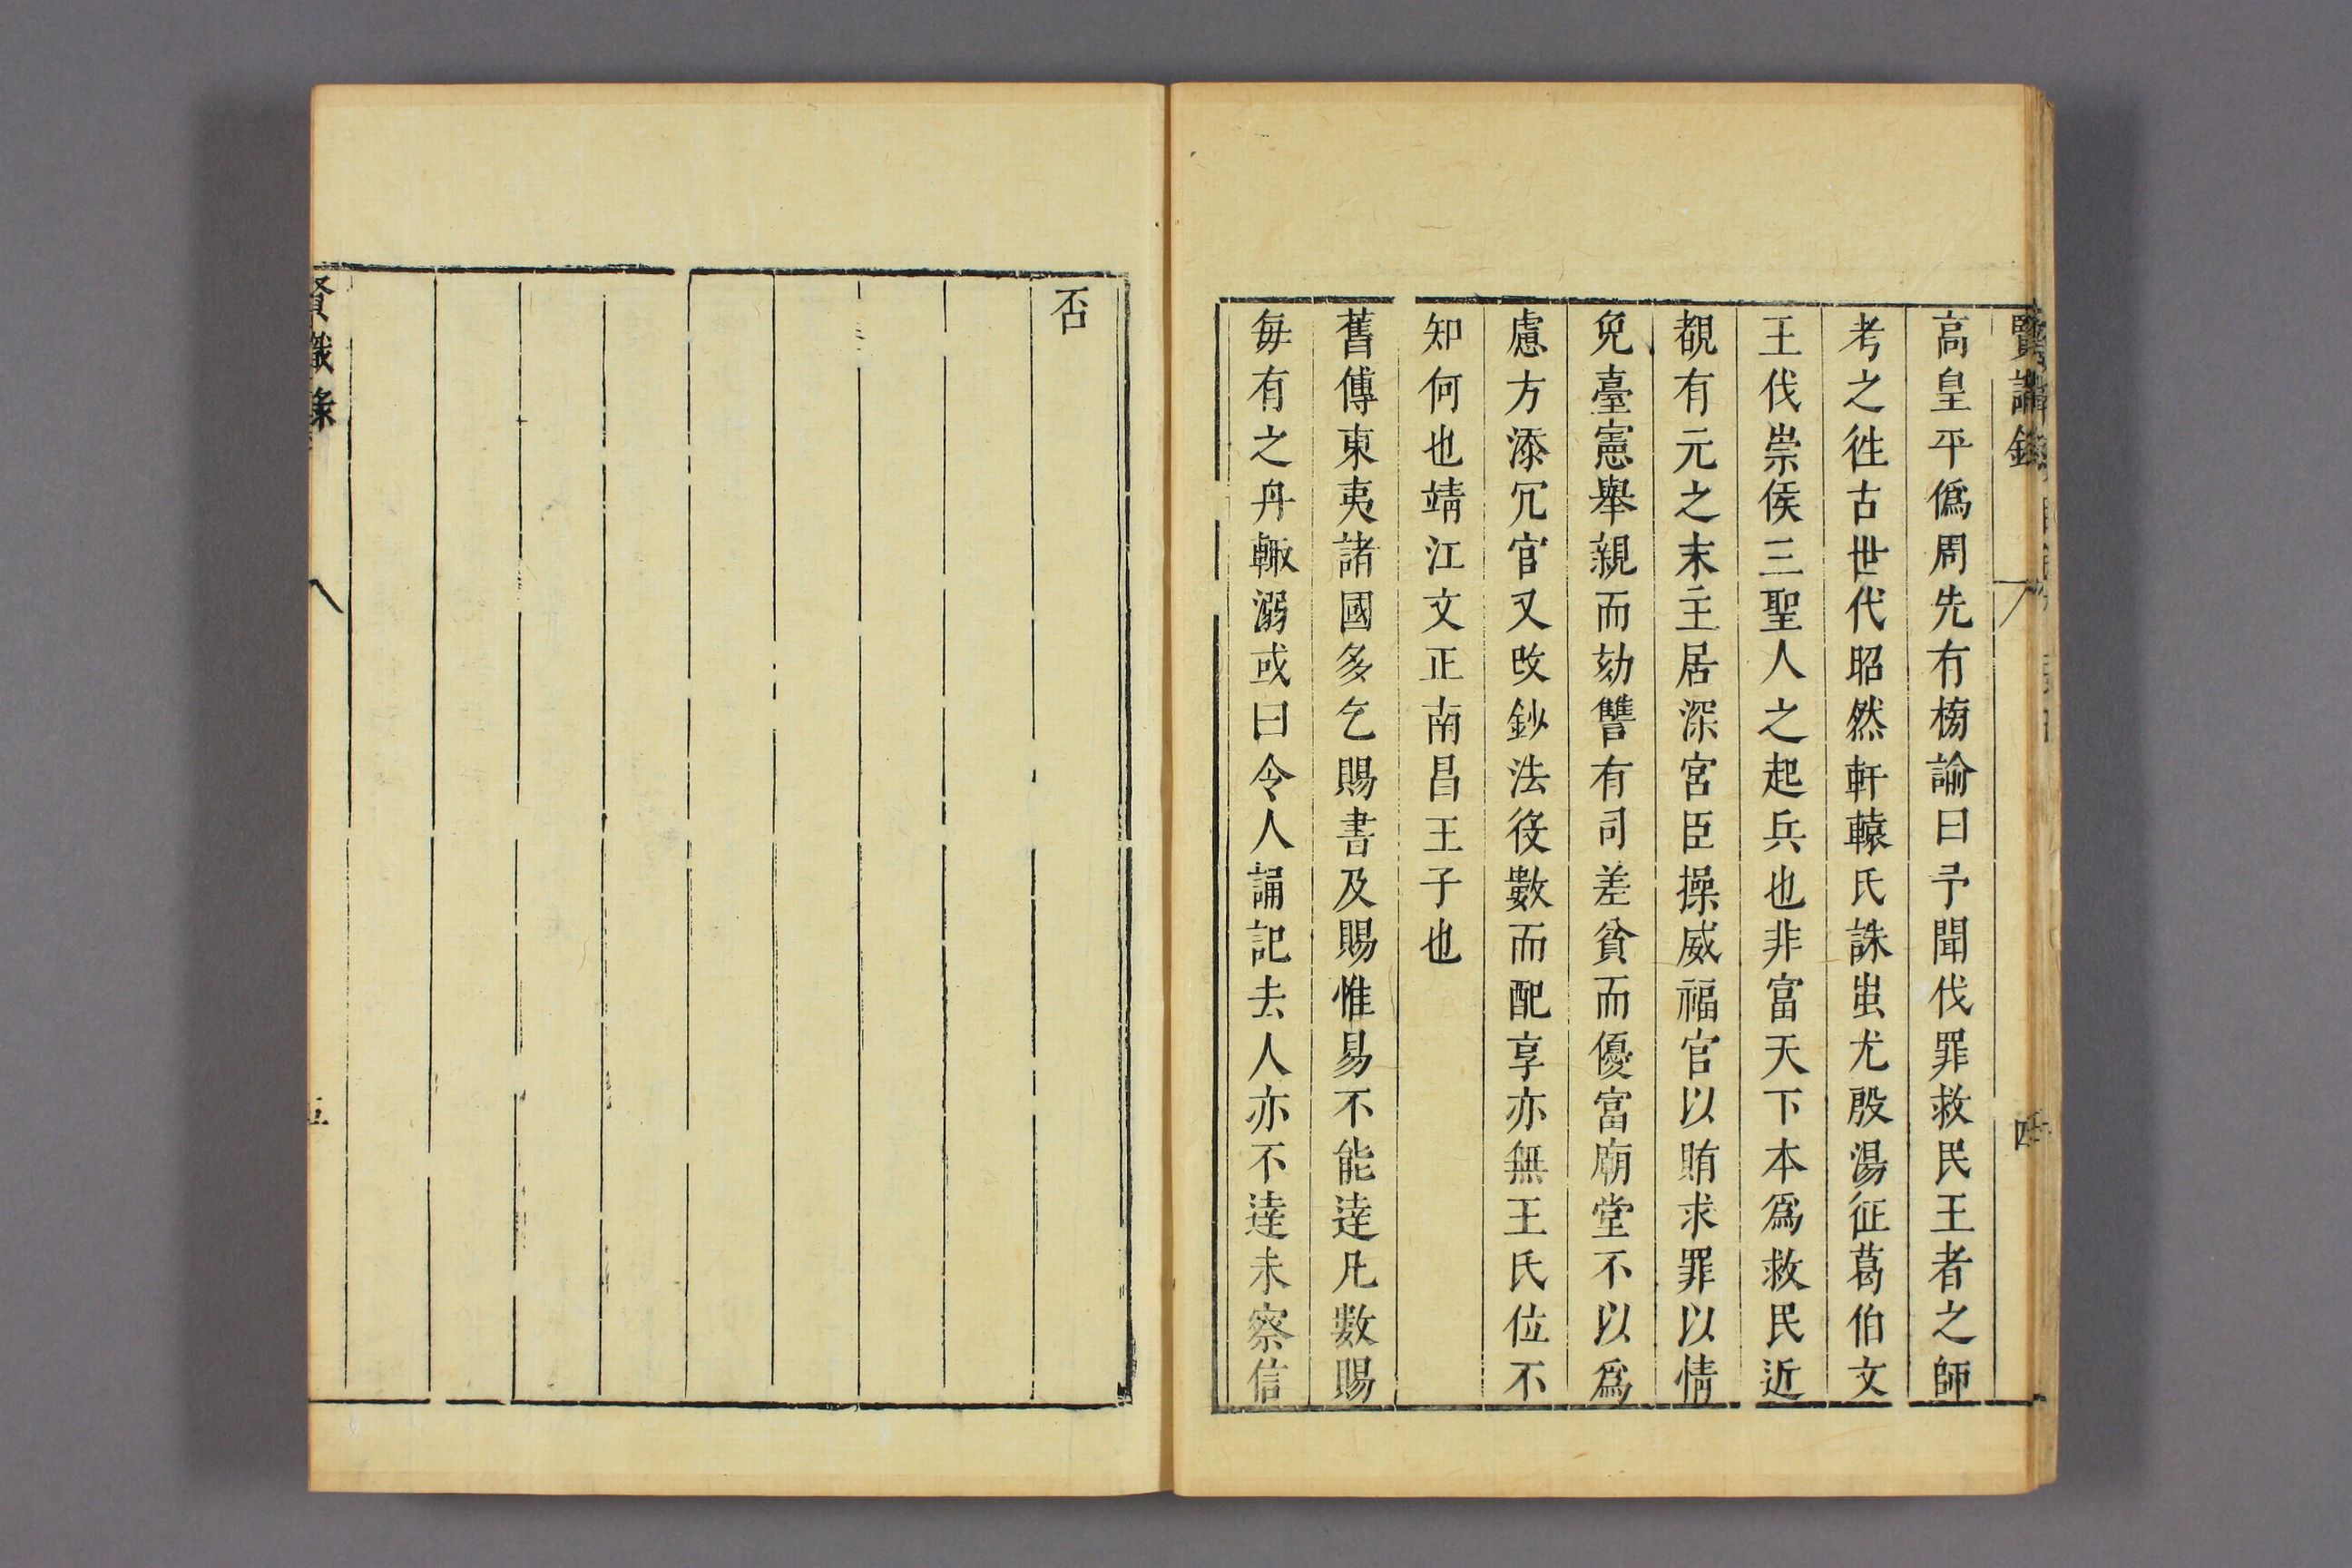 賢識錄
四
高皇平僞周先有榜諭曰予聞伐罪救民王者之師
考之徃古世代昭然軒轅氏誅蚩尤殷湯征葛伯文
王伐崇侯三聖人之起兵也非富天下本爲救民近
覩有元之末主居深宮臣操威福官以賄求罪以情
免臺憲舉親而劾讐有司差貧而優富廟堂不以爲
慮方添冗官又攺鈔法役數而配享亦無王氏位不
知何也靖江文正南昌王子也
舊傳東夷諸國多乞賜書及賜惟易不能逹凡數賜
每有之舟輙溺或曰令人誦記去人亦不逹未察信
否
賢識錄
五